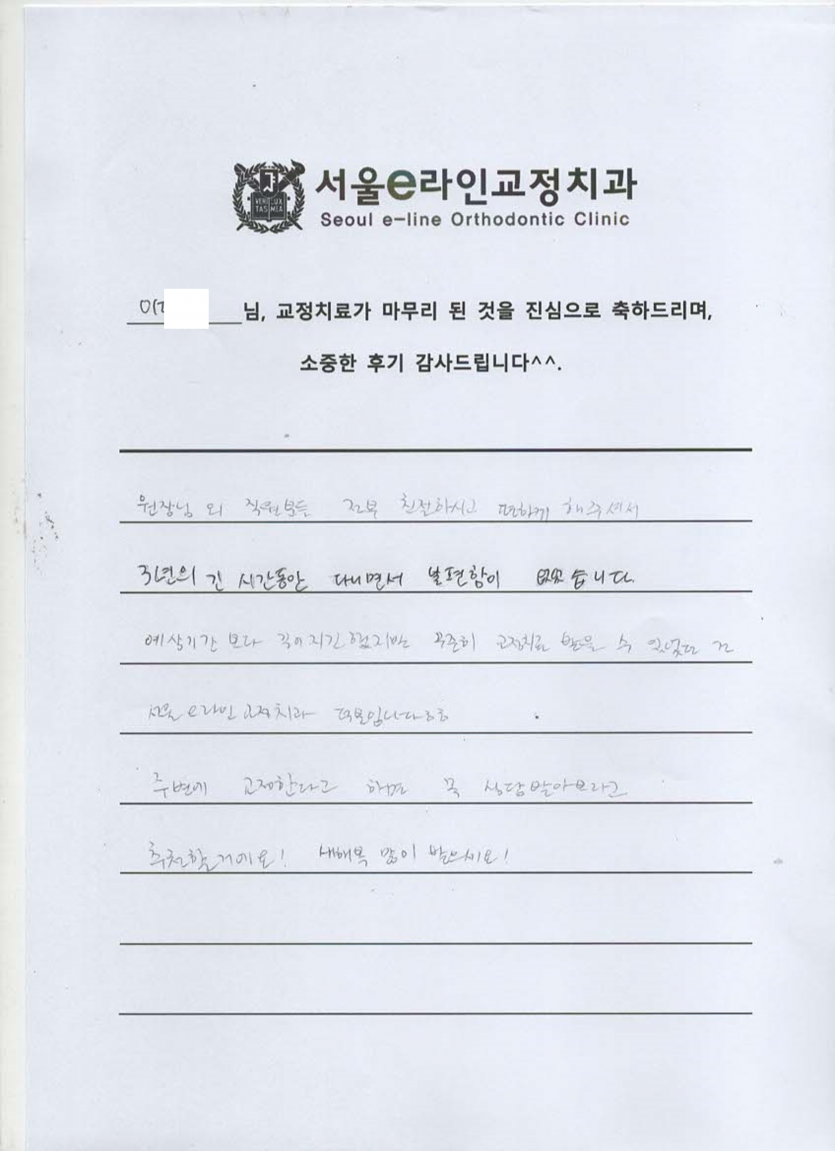 서울e라인교정치과
Seoul e-line Orthodontic Clinic
VERI LUX
TAS MEA
님, 교정치료가 마무리 된 것을 진심으로 축하드리며,
소중한 후기 감사드립니다^^.
원장님 외 직원분들 전부 친절하시고 편하게 해주셔서
3년의 긴 시간동안 다니면서 불편함이 없었습니다.
예상기간 보다 길어지긴 했지만 꾸준히 교정치료 받을 수 있었던 건
서울e라인교정치과 덕분입니다ㅎㅎ
주변에 교정한다고 하면 꼭 상담받아보라고
추천할거에요! 새해복 많이 받으세요!